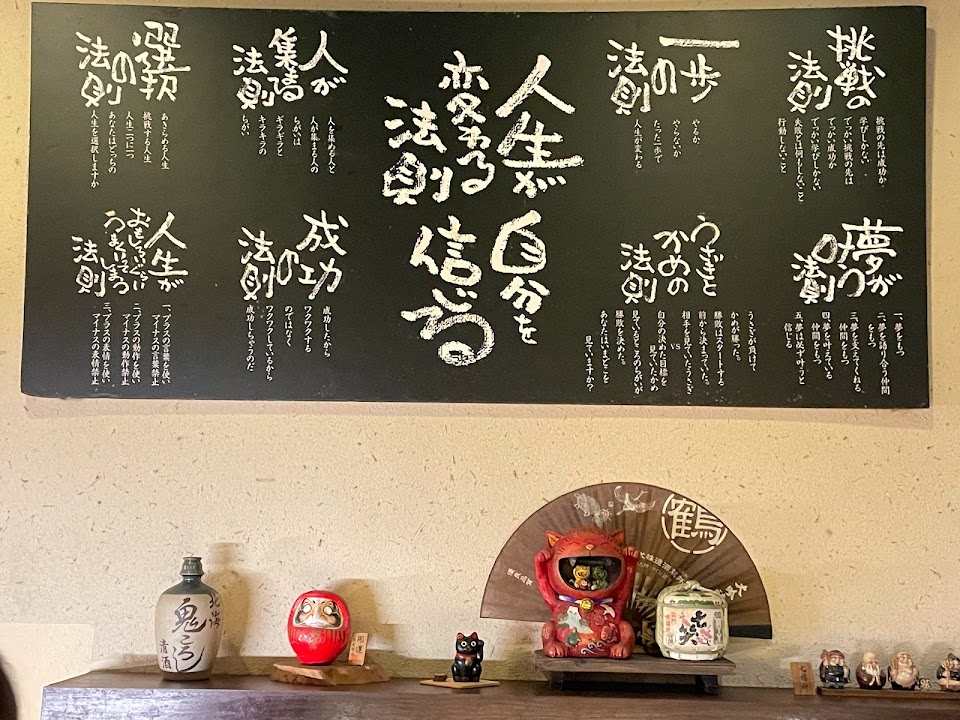 挑戦の
法則
挑戦の先は成功か
学びしかない
でっかい挑戦の先は
でっかい成功か
でっかい学びしかない
失敗とは何もしないこと
行動しないこと
一歩
の
法則
やるか
やらないか
たった一歩で
人生が変わる
人生が
変わる
法則
自分を
信じる
人が
集まる
法則
人を集める人と
人が集まる人の
ちがいは
ギラギラと
キラキラの
ちがい
選択
の
法則
あきらめる人生
挑戦する人生
人生二つに一つ
あなたはどっちの
人生を選択しますか
夢が
叶う
法則
一、夢をもつ
二、夢を語り合う仲間
をもつ
三、夢を支えてくれる
仲間をもつ
四、夢を叶えている
仲間をもつ
五、夢は必ず叶うと
信じる
うさぎと
かめの
法則
うさぎが負けて
かめが勝った。
勝敗はスタートする
前から決まっていた。
相手を見ていたうさぎ
VS
自分の決めた目標を
見ていたかめ
見ているところのちがいが
勝敗を決めた。
あなたはいまどこを
見ていますか？
成功
の
法則
成功したから
ワクワクする
のではなく
ワクワクしているから
成功しちゃうのだ
人生が
おもしろいぐらい
うまくいってしまう
法則
一、プラスの言葉を使い
マイナスの言葉禁止
二、プラスの動作を使い
マイナスの動作禁止
三、プラスの表情を使い
マイナスの表情禁止
鶴
鬼ころし
清酒
開運
七笑
七福神